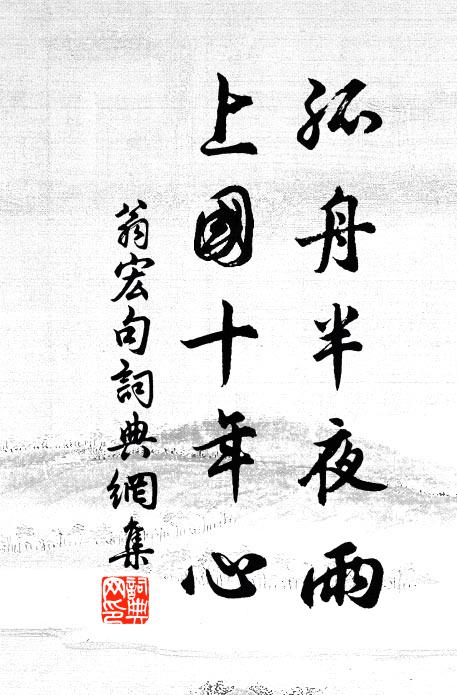 孤舟半夜雨
上國十年心
翁宏句詞典網集
詞典网印